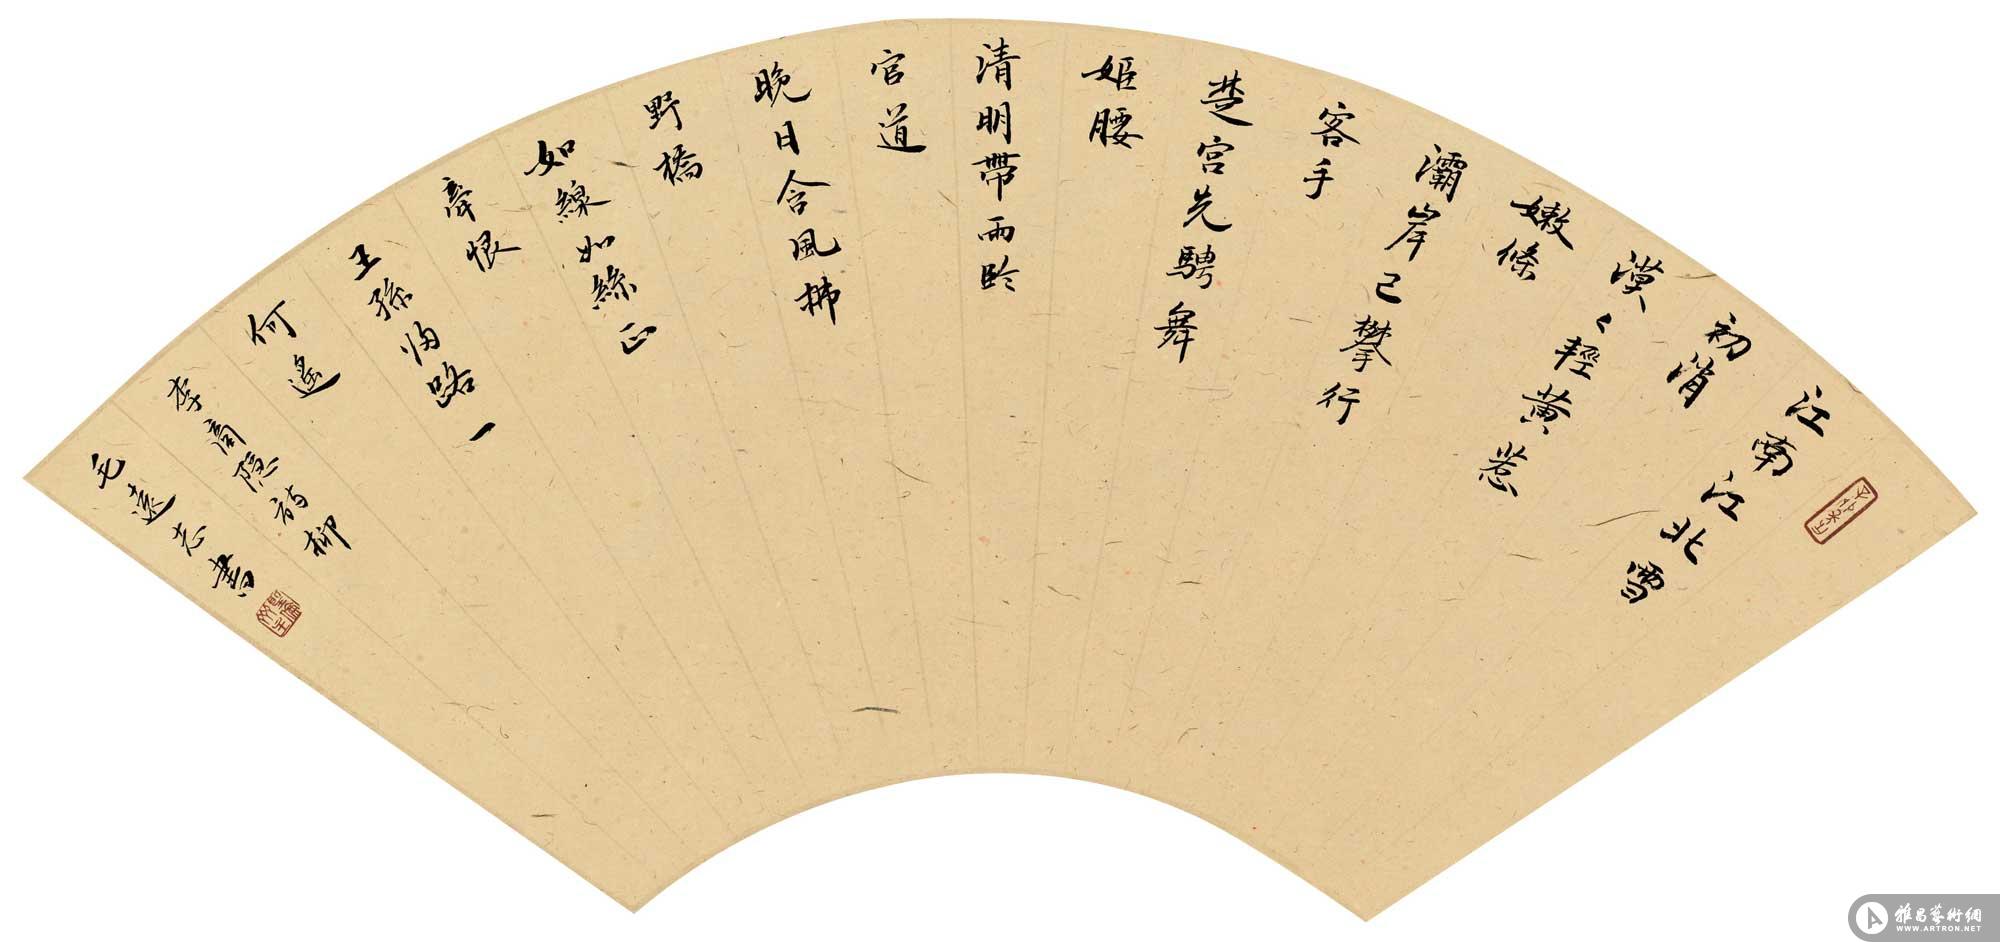 江南江北雪
初消
漠々輕黃惹
嫩條
灞岸已攀行
客手
楚宮先騁舞
姬腰
清明帶雨臨
官道
晚日含風拂
野橋
如線如絲正
牽恨
王孫归路一
何遙
李商隐詩柳
毛遠志書
雅昌藝術網
WWW.ARTRON.NET